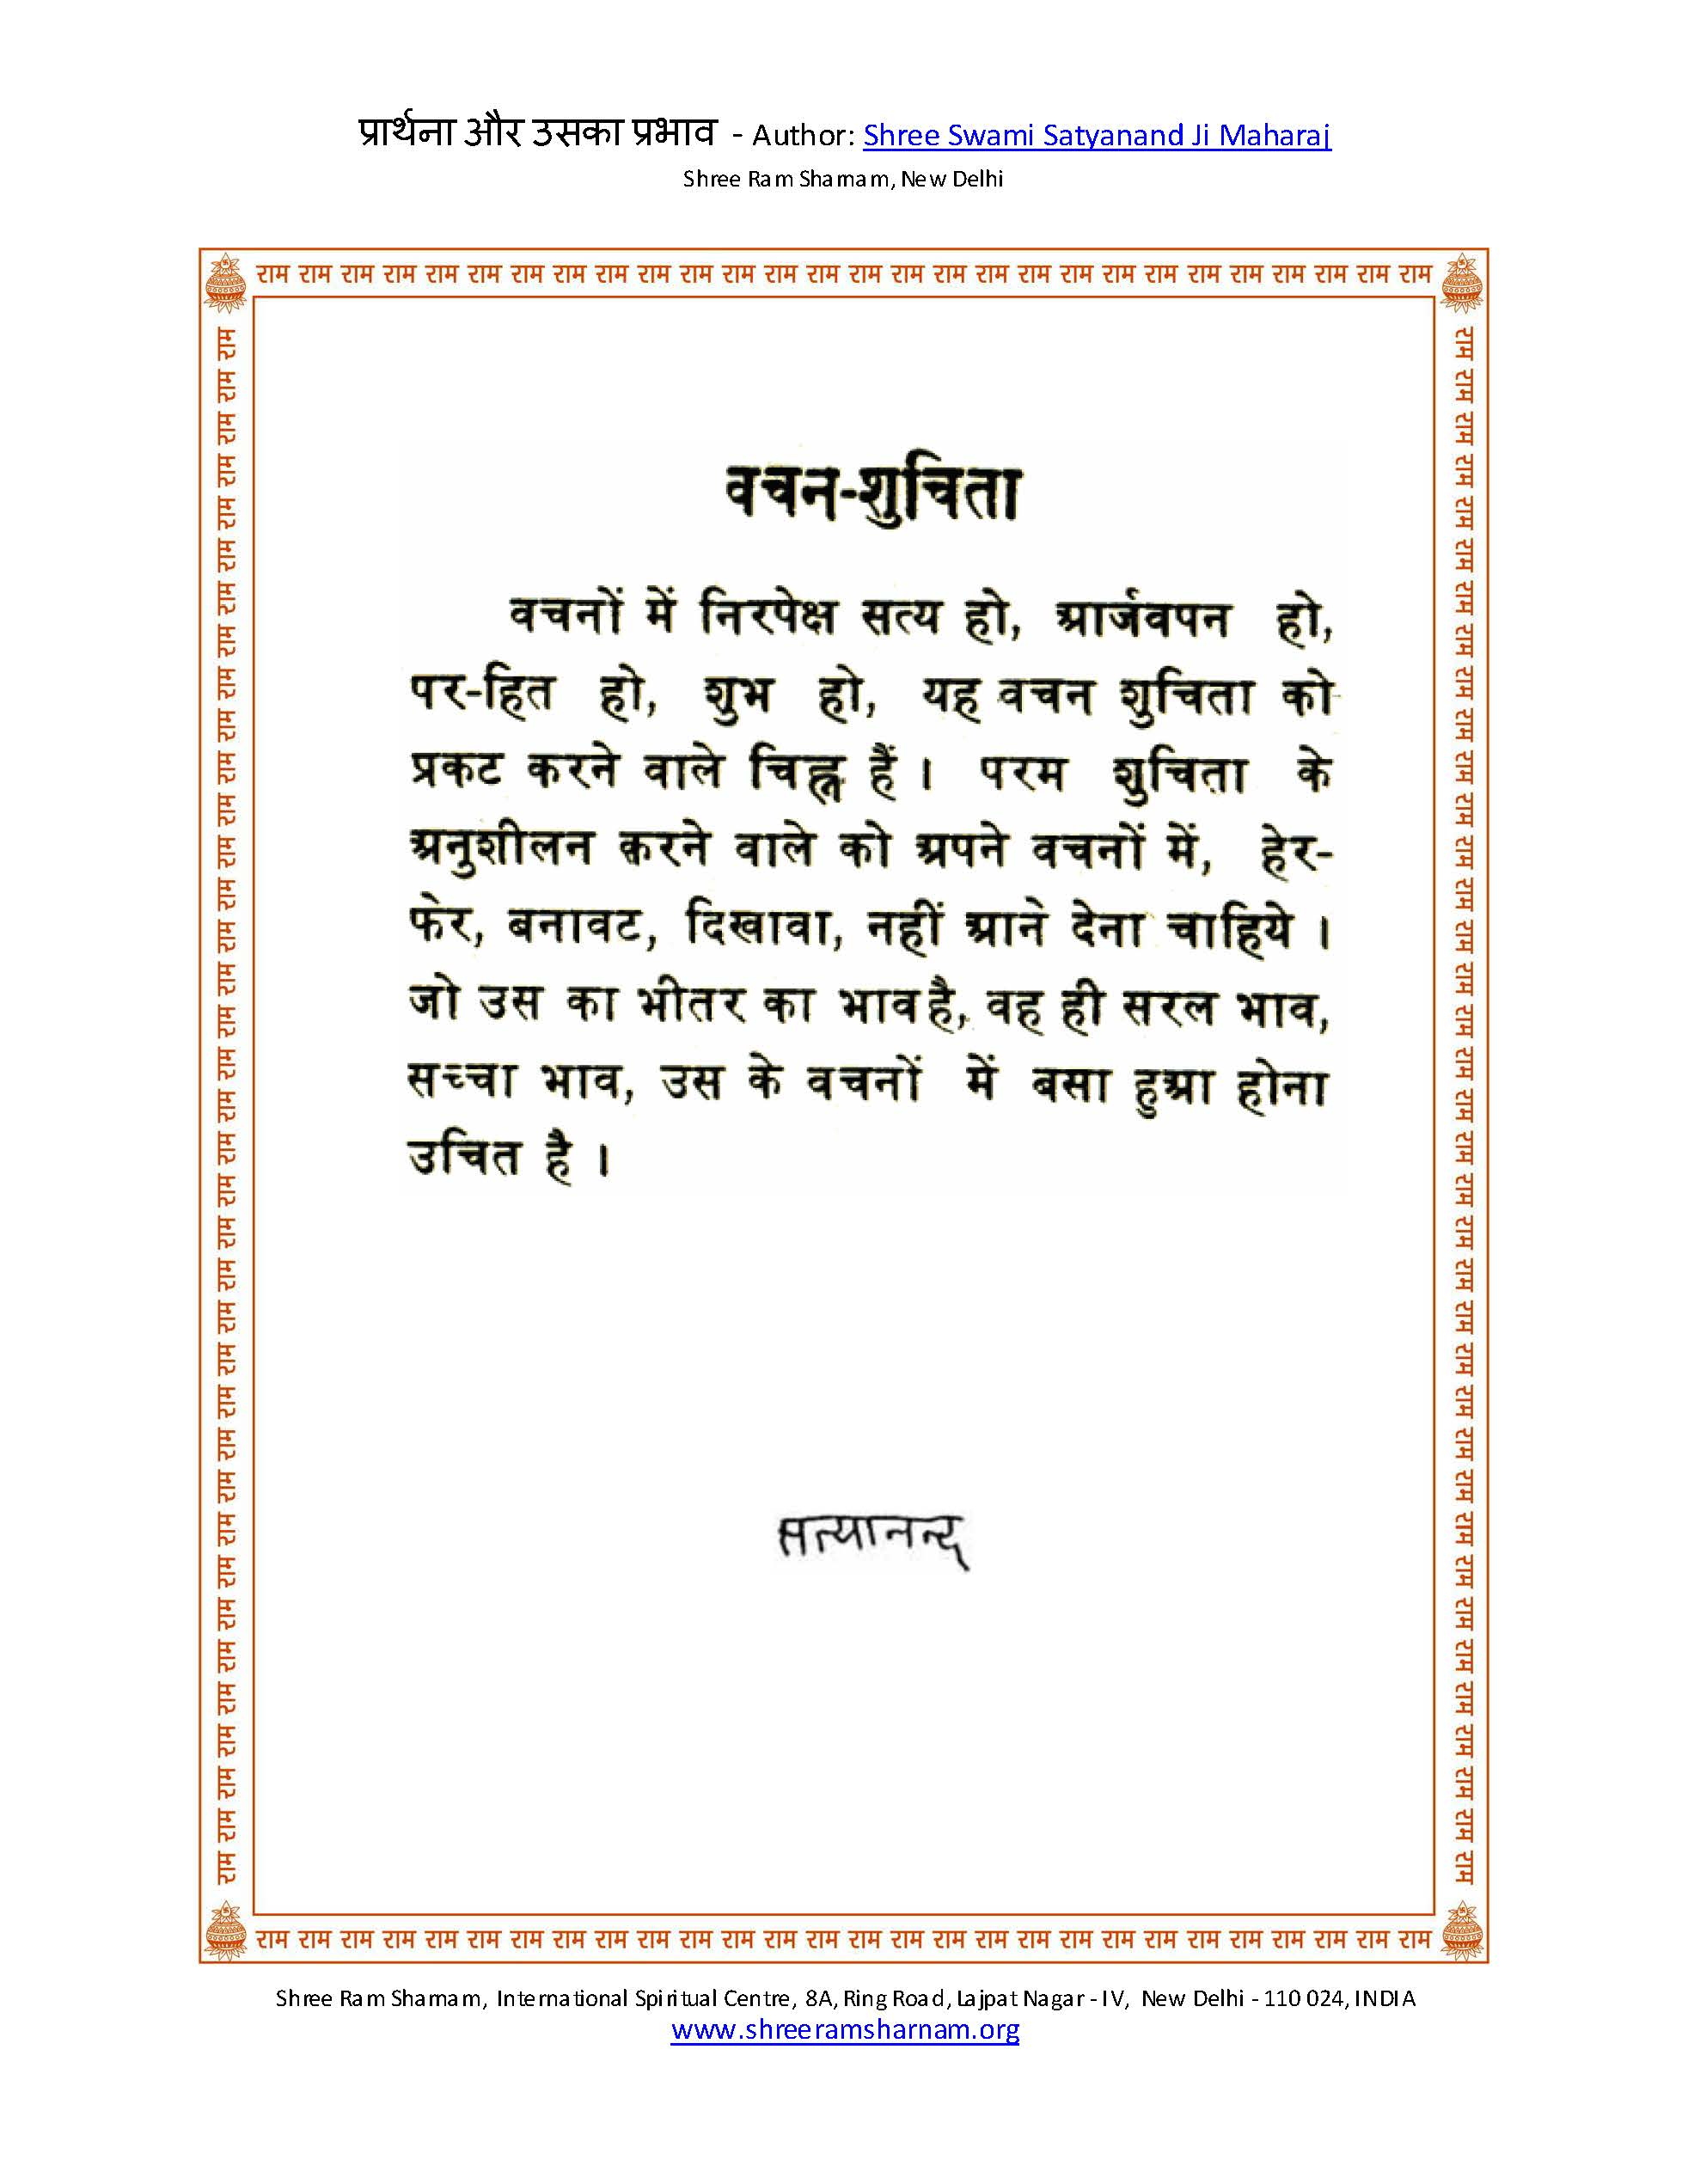 प्रार्थना और उसका प्रभाव - Author: Shree Swami Satyanand Ji Maharaj
Shree Ram Sharnam, New Delhi
राम राम राम राम राम राम राम राम राम राम राम राम राम राम राम राम राम राम राम राम राम राम राम राम राम राम राम राम
वचन-शुचिता
वचनों में निरपेक्ष सत्य हो, आर्जवपन हो,
पर-हित हो, शुभ हो, यह वचन शुचिता को
प्रकट करने वाले चिह्न हैं । परम शुचिता के
अनुशीलन करने वाले को अपने वचनों में, हेर-
फेर, बनावट, दिखावा, नहीं आने देना चाहिये ।
जो उस का भीतर का भाव है, वह ही सरल भाव,
सच्चा भाव, उस के वचनों में बसा हुआ होना
उचित है ।
सत्यानन्द
राम राम राम राम राम राम राम राम राम राम राम राम राम राम राम राम राम राम राम राम राम राम राम राम राम राम राम राम
राम राम राम राम राम राम राम राम राम राम राम राम राम राम राम राम राम राम राम राम राम राम राम राम राम राम राम राम राम राम राम राम राम राम राम राम राम
राम राम राम राम राम राम राम राम राम राम राम राम राम राम राम राम राम राम राम राम राम राम राम राम राम राम राम राम राम राम राम राम राम राम राम राम राम
Shree Ram Sharnam, International Spiritual Centre, 8A, Ring Road, Lajpat Nagar - IV, New Delhi - 110 024, INDIA
www.shreeramsharnam.org